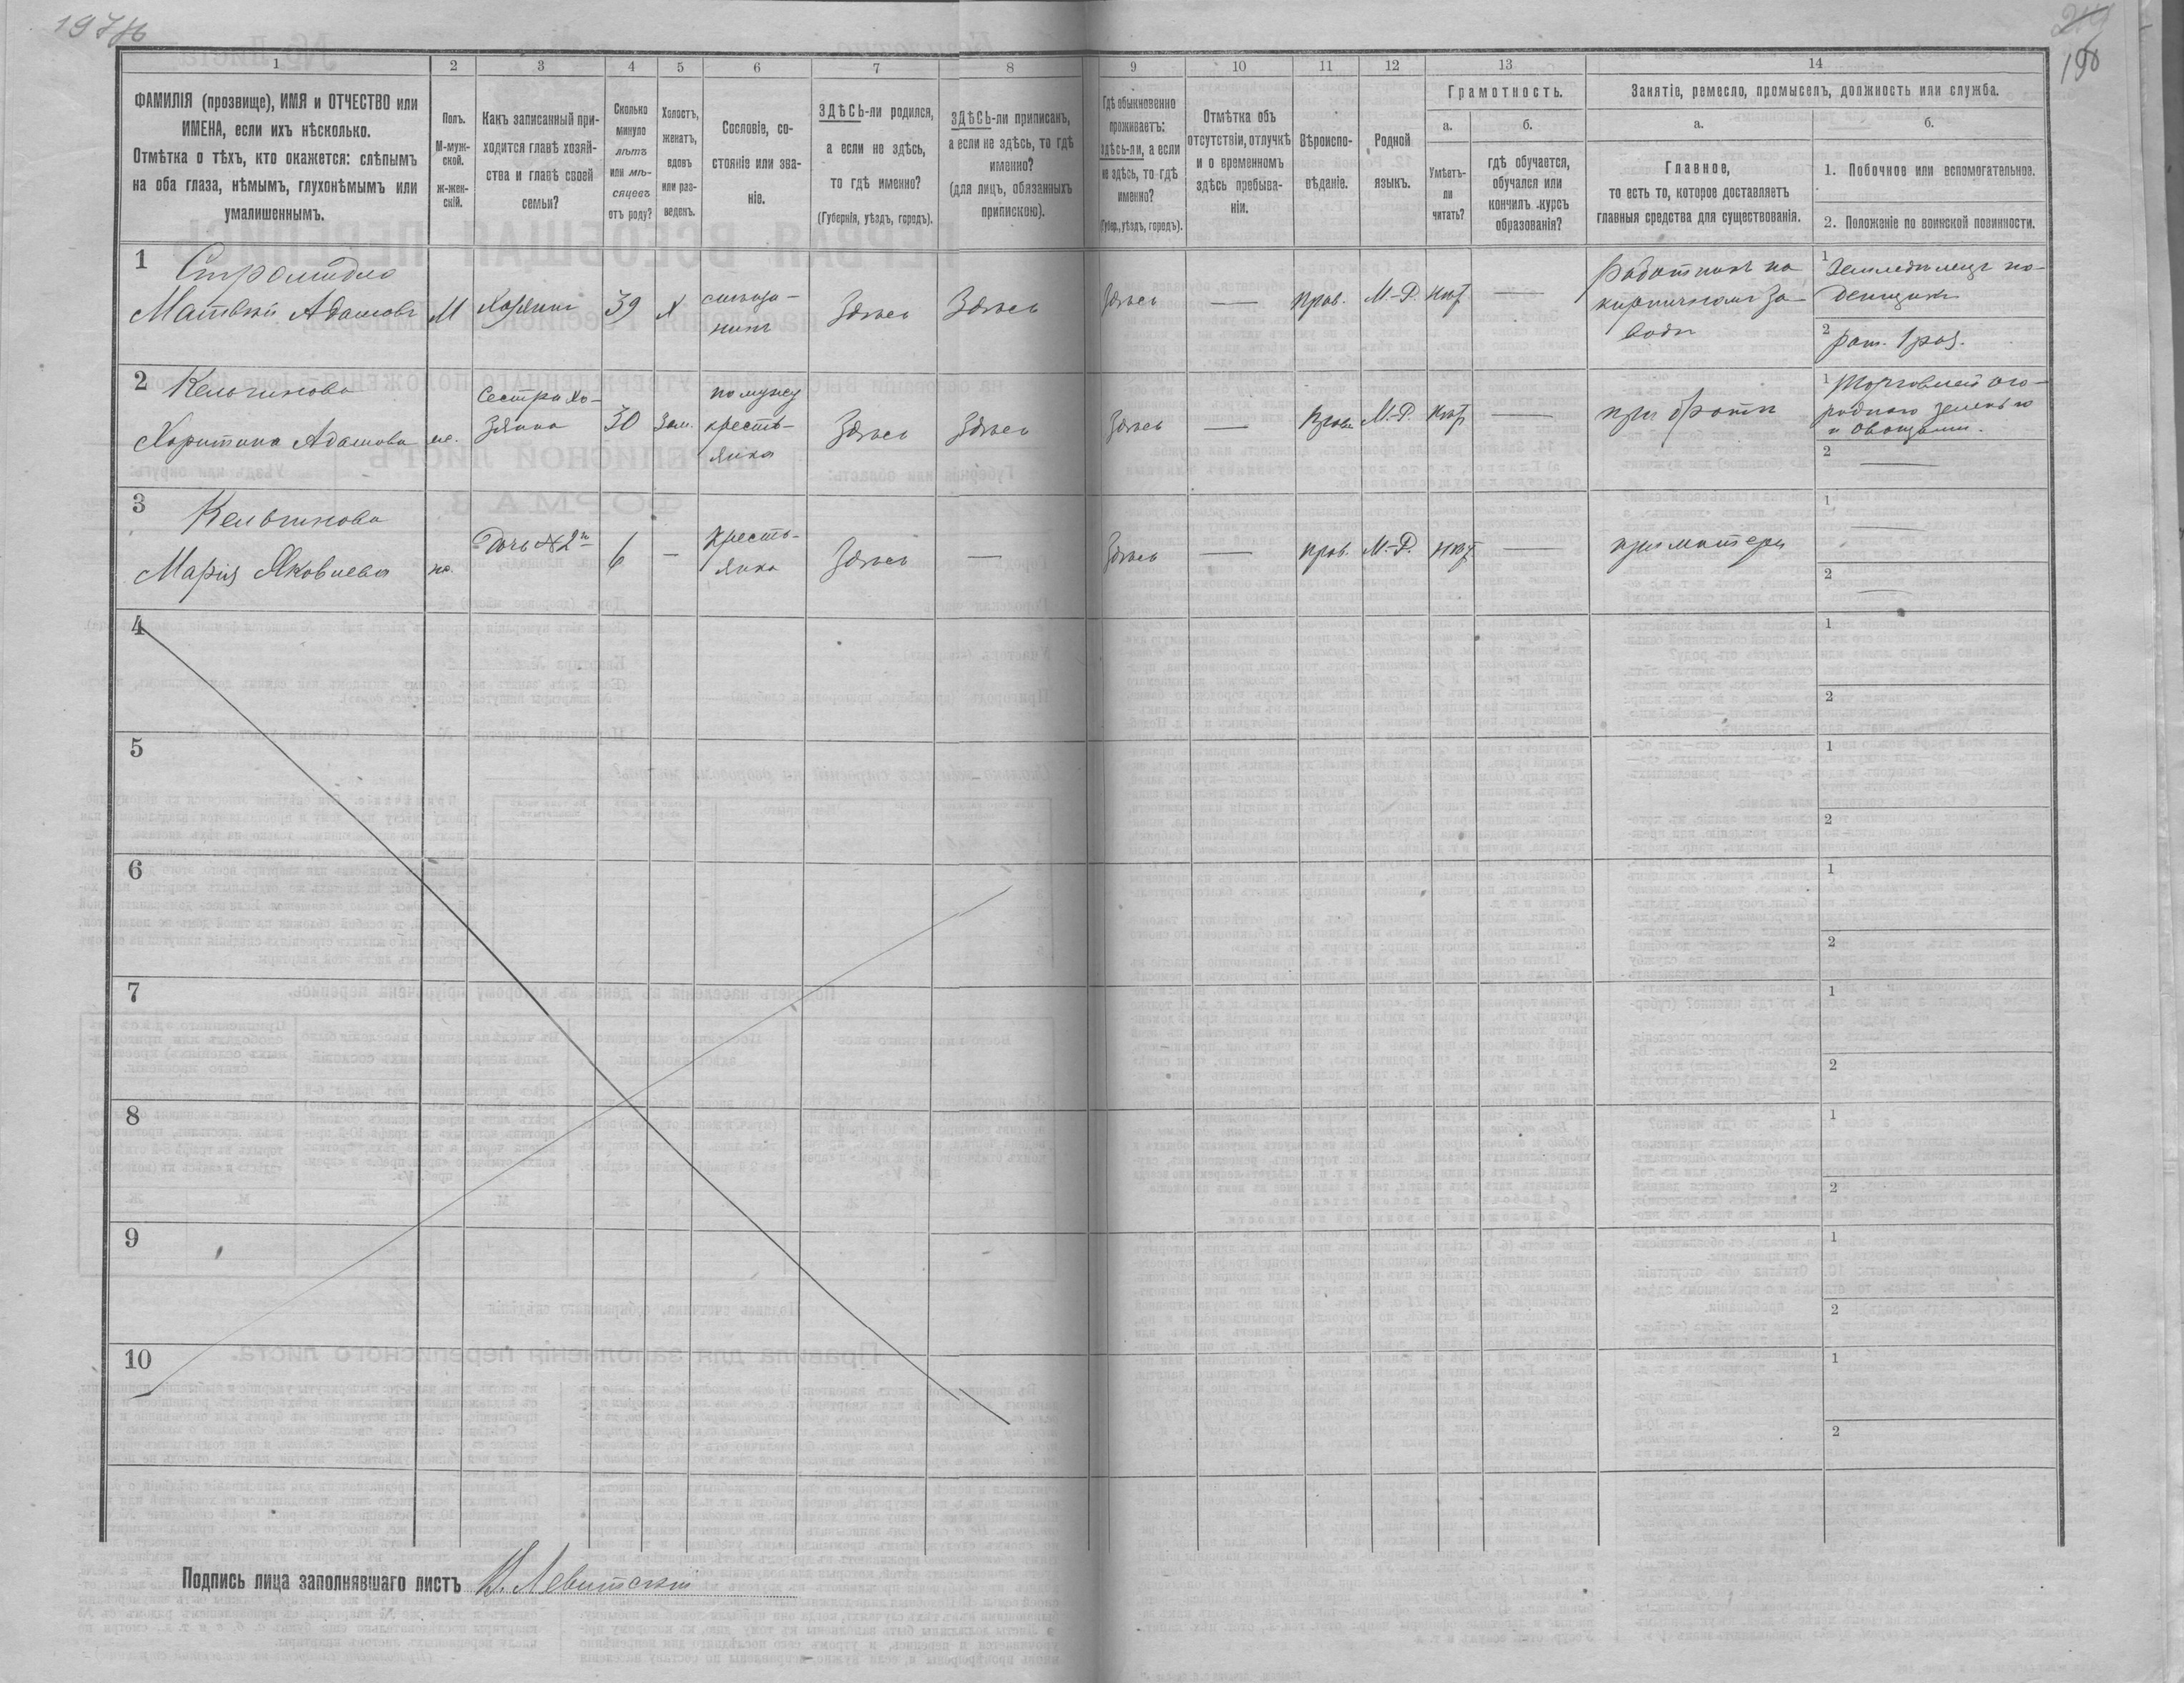 197об
214
198
1 2 3 4 5 6 7 8 9 10 11 12 13 14
ФАМИЛІЯ (прозвище), ИМЯ и ОТЧЕСТВО или
ИМЕНА, если ихъ нѣсколько.
Отмѣтка о тѣхъ, кто окажется: слѣпымъ
на оба глаза, нѣмымъ, глухонѣмымъ или
умалишеннымъ.
Полъ.
М-муж-
ской.
ж-жен-
скій.
Какъ записанный при-
ходится главѣ хозяй-
ства и главѣ своей
семьи?
Сколько
минуло
лѣтъ
или мѣ-
сяцевъ
отъ роду?
Холостъ,
женатъ,
вдовъ
или раз-
веденъ.
Сословіе, со-
стояніе или зва-
ніе.
ЗДѢСЬ-ли родился,
а если не здѣсь,
то гдѣ именно?
(Губернія, уѣздъ, городъ).
ЗДѢСЬ-ли приписанъ,
а если не здѣсь, то гдѣ
именно?
(для лицъ, обязанныхъ
припискою).
Гдѣ обыкновенно
проживаетъ:
здѣсь-ли, а если
не здѣсь, то гдѣ
именно?
(Губер., уѣздъ, городъ).
Отмѣтка объ
отсутствіи, отлучкѣ
и о временномъ
здѣсь пребыва-
ніи.
Вѣроиспо-
вѣданіе.
Родной
языкъ.
Грамотность.
а.
Умѣетъ-
ли
читать?
б.
гдѣ обучается,
обучался или
кончилъ курсъ
образованія?
Занятіе, ремесло, промыселъ, должность или служба.
а.
Главное,
то есть то, которое доставляетъ
главныя средства для существованія.
б.
1. Побочное или вспомогательное.
2. Положеніе по воинской повинности.
1
Матвѣй Адамовъ
М
Хозяинъ
39
Х
Здѣсь
Здѣсь
Здѣсь
—
прав.
М.-Р.
нѣт
—
Работникъ на
кирпичномъ за-
водѣ
1
Земледѣлецъ по-
денщикъ
2
рат. 1 раз.
2
Кельчинова
Харитина Адамова
ж.
Сестра хо-
зяина
30
Зам.
по мужу
кресть-
янка
Здѣсь
Здѣсь
Здѣсь
—
прав.
М.-Р.
нѣт
—
при братѣ
1
Торговлей ого-
родною зеленью
и овощами.
2
—
3
Кельчинова
Марія Яковлева
ж.
Дочь № 2й
6
—
кресть-
янка
Здѣсь
—
Здѣсь
—
прав.
М.-Р.
нѣт
—
при матери
1
—
2
—
4
1
2
5
1
2
6
1
2
7
1
2
8
1
2
9
1
2
10
1
2
Подпись лица заполнявшаго листъ